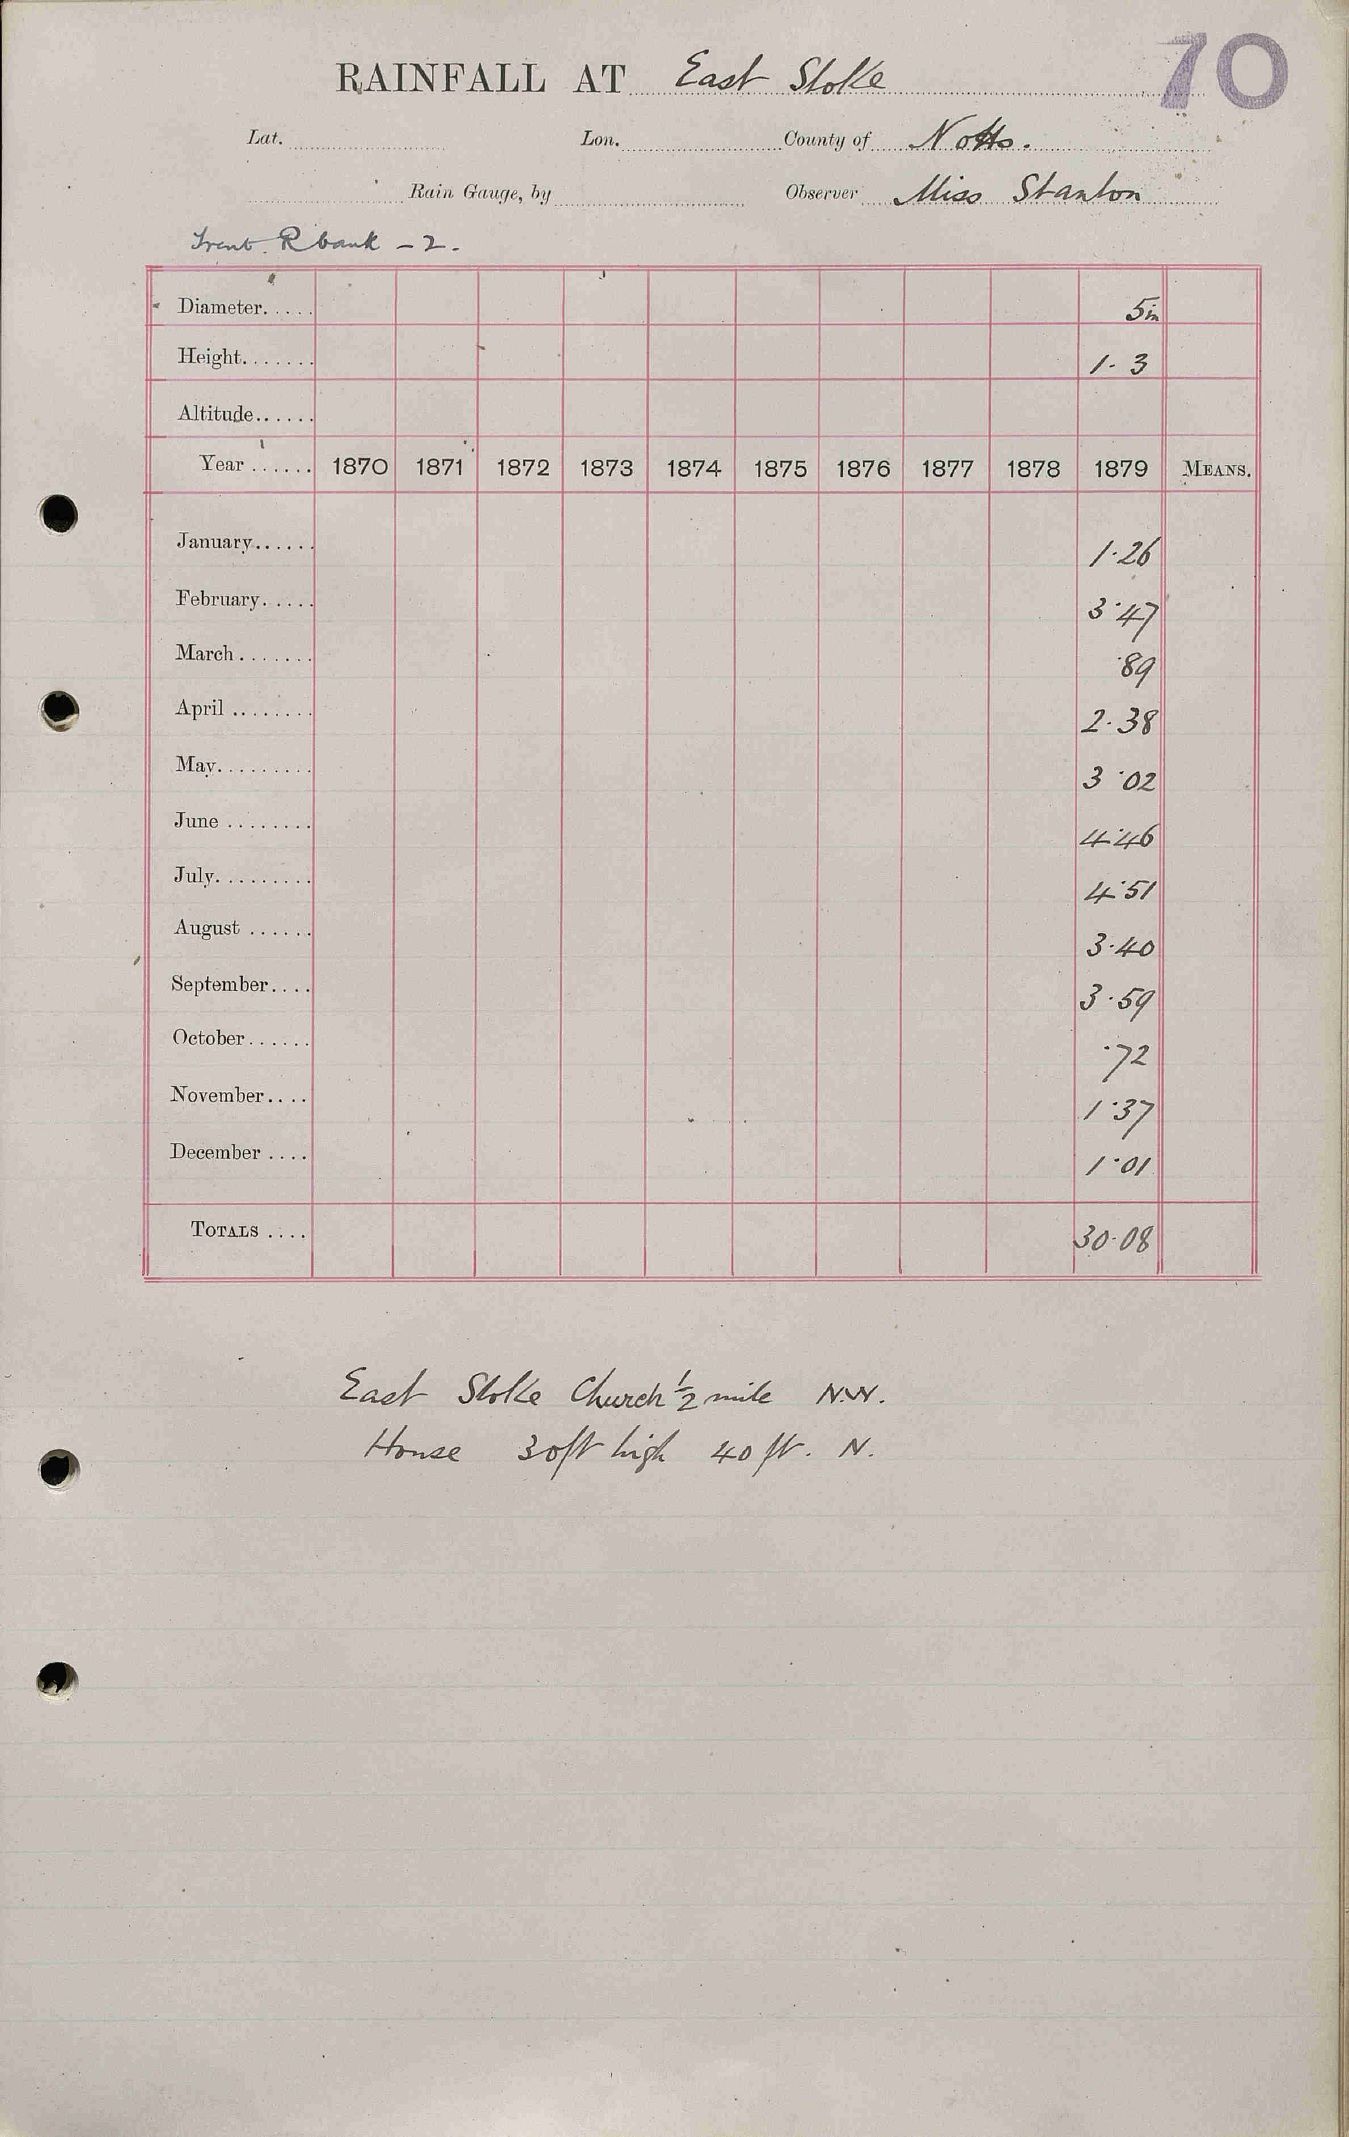 70
RAINFALL AT East Stoke
Lat. Lon. County of Notts.
Rain Gauge, by Observer Miss Stanton
Trent R bank - 2.
Diameter..... 5in
Height....... 1.3
Altitude......
Year ...... 1870 1871 1872 1873 1874 1875 1876 1877 1878 1879 MEANS.
January...... 1.26
February..... 3.47
March....... .89
April ........ 2.38
May......... 3.02
June ........ 4.46
July......... 4.51
August ...... 3.40
September.... 3.59
October...... .72
November.... 1.37
December .... 1.01
TOTALS .... 30.08
East Stoke Church ½ mile N.W.
House 30ft high 40 ft. N.